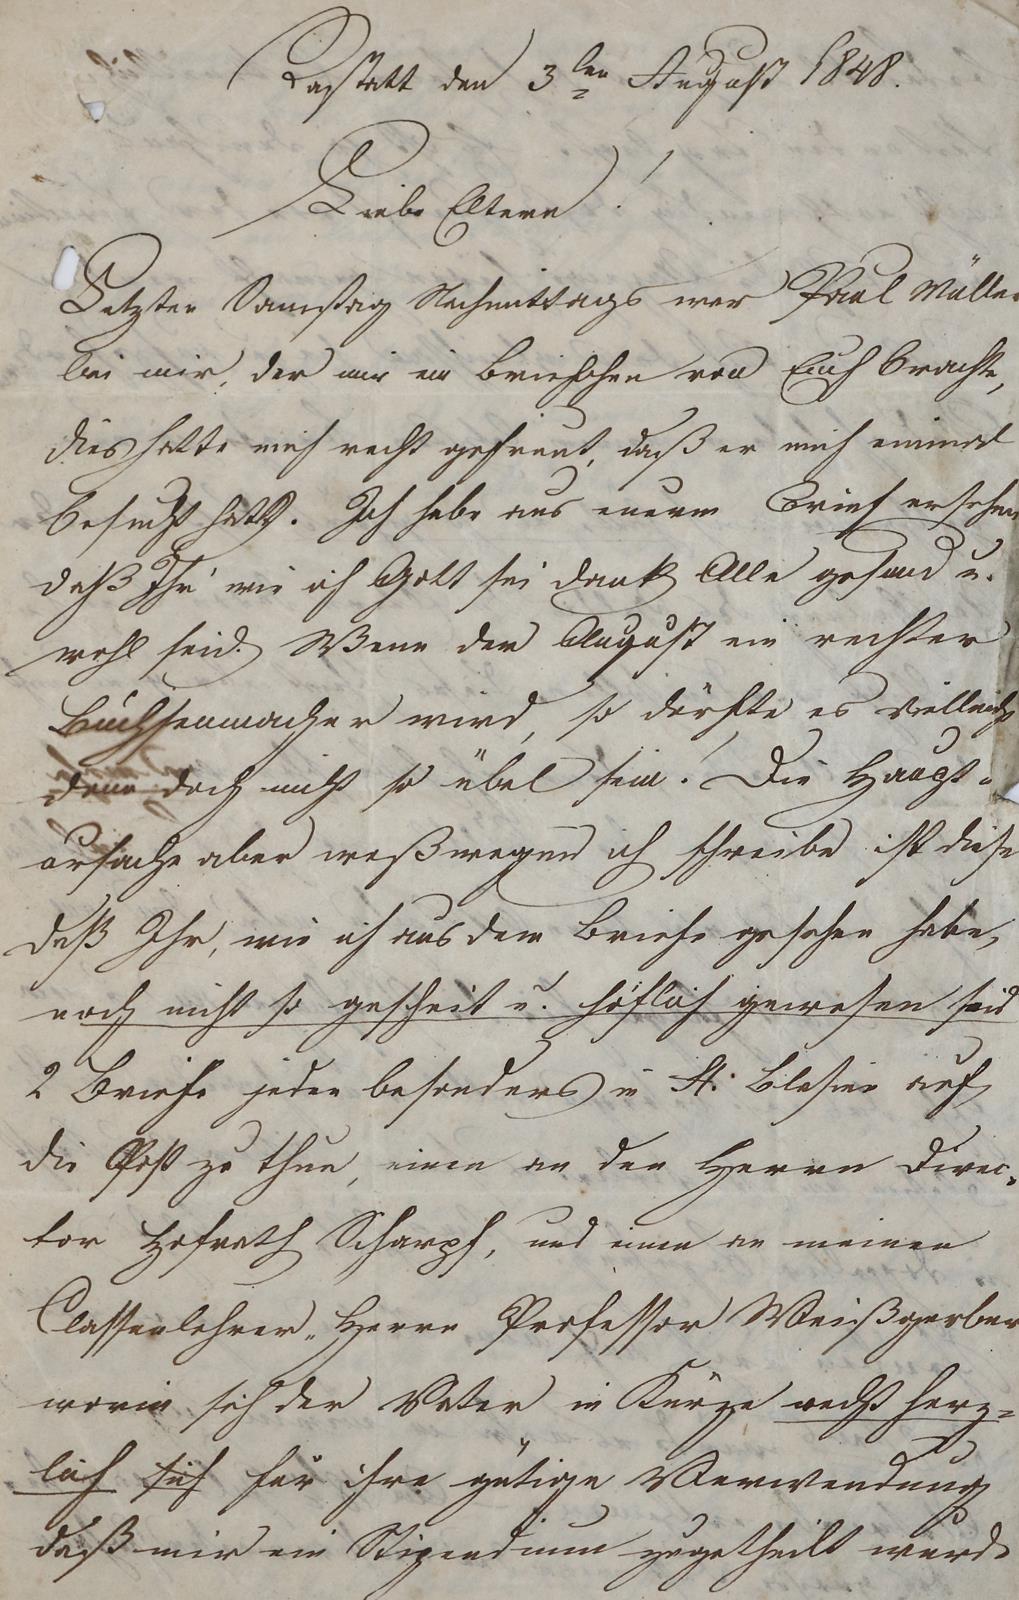 Rastatt den 3ten August 1848.
Liebe Eltern!
Letzten Samstag Nachmittags war Paul Müller
bei mir, der mir ein Briefchen von Euch brachte,
dies hatte mich recht gefreut, daß er mich einmal
besucht hatte. Ich habe aus euerm Brief ersehen
daß Ihr wie ich Gott sei dank Alle gesund u.
wohl seid. Wenn der August ein rechter
Büchsenmacher wird, so dörfte es vielleicht
denn doch nicht so übel sein! Die Haupt-
ursache aber weßwegen ich schreibe ist diese
daß Ihr, wie ich aus dem Briefe gesehen habe,
noch nicht so gescheit u. höflich gewesen seid
2 Briefe jeden besonders in St. Blasien auf
die Post zu thun, einen an den Herrn Direc-
tor Hofrath Scharpf, und einen an meinen
Classenlehrer, Herrn Professor Weißgerber
worin sich der Vater in Kürze recht herz-
lich sich für ihre gütige Verwendung
daß mir ein Stipendium zugetheilt wurde